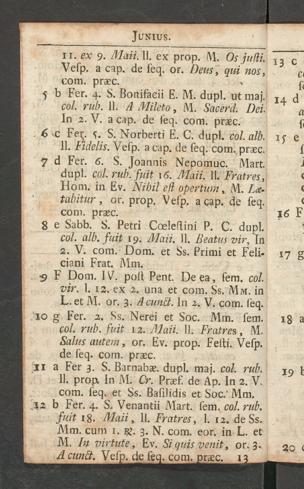 JUNIUS.
11. ex 9. Maii. ll. ex prop. M. Os justi.
Vesp. a cap. de seq. or. Deus, qui nos,
com. præc.
5 b Fer. 4. S. Bonifacii E. M. dupl. ut maj.
col. rub. ll. A Mileto, M. Sacerd. Dei.
In 2. V. a cap. de seq. com. præc.
6 c Fer. 5. S. Norberti E. C. dupl. col. alb.
ll. Fidelis. Vesp. a cap. de seq. com. præc.
7 d Fer. 6. S. Joannis Nepomuc. Mart.
dupl. col. rub. fuit 16. Maii. ll. Fratres,
Hom. in Ev. Nihil est opertum, M. Læ-
tabitur, or. prop. Vesp. a cap. de seq.
com. præc.
8 e Sabb. S. Petri Cœlestini P. C. dupl.
col. alb. fuit 19. Maii. ll. Beatus vir, In
2. V. com. Dom. et Ss. Primi et Feli-
ciani Frat. Mm.
9 F Dom. IV. post Pent. De ea, sem. col.
vir. l. 12. ex 2. una et com. Ss. Mm. in
L. et M. or. 3. A cunct. In 2. V. com. seq.
10 g Fer. 2. Ss. Nerei et Soc. Mm. sem.
col. rub. fuit 12. Maii. ll. Fratres, M.
Salus autem, or. Ev. prop. Festi. Vesp.
de seq. com. præc.
11 a Fer 3. S. Barnabæ. dupl. maj. col. rub.
ll. prop. In M. Cr. Præf. de Ap. In 2. V.
com. seq. et Ss. Basilidis et Soc. Mm.
12 b Fer. 4. S. Venantii Mart. sem. col. rub.
fuit 18. Maii, ll. Fratres, l. 12. de Ss.
Mm. cum 1. & 3. N. com. eor. in L. et
M. In virtute, Ev. Si quis venit, or. 3.
A cunct. Vesp. de seq. com. præc. 13
13 c
14 d
15 e
16 F
17 g
18 a
19 b
20 c